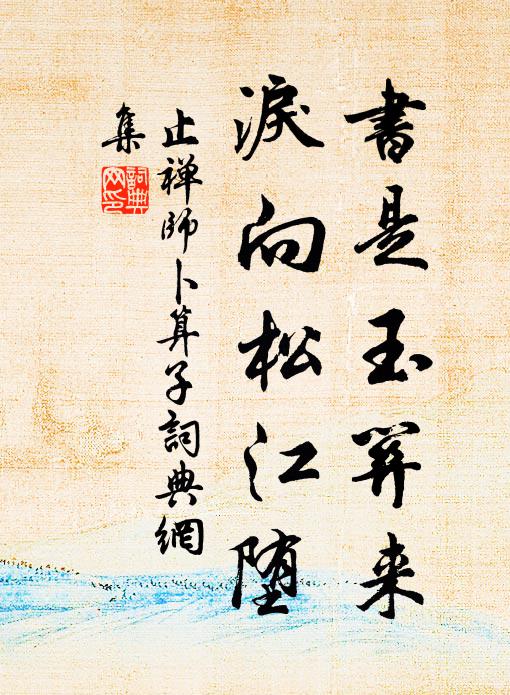 書是玉关来
淚向松江堕
止禅師卜算子詞典網
集
詞典网印